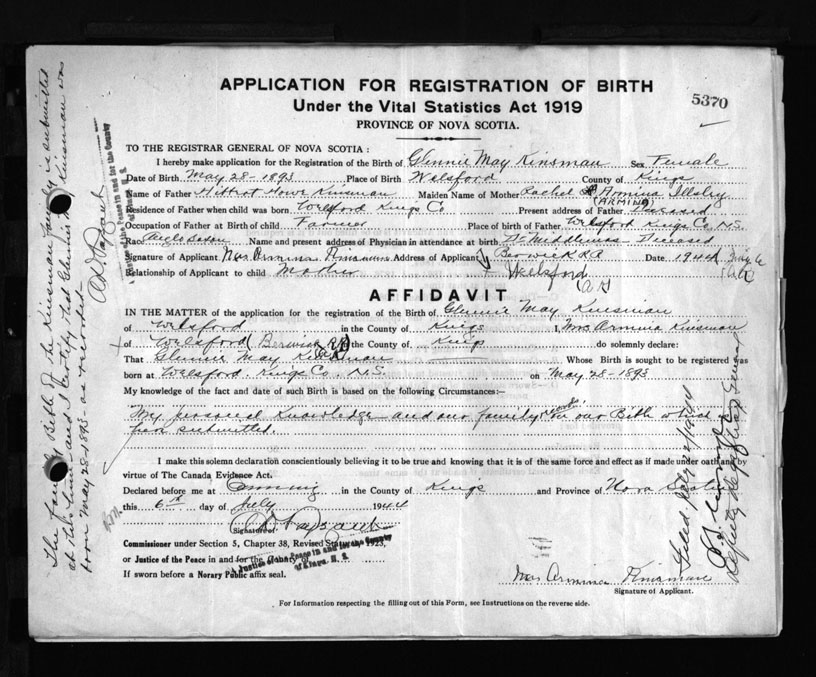 APPLICATION FOR REGISTRATION OF BIRTH
Under the Vital Statistics Act 1919
PROVINCE OF NOVA SCOTIA.
5370
TO THE REGISTRAR GENERAL OF NOVA SCOTIA:
I hereby make application for the Registration of the Birth of Glennie May Kinsman Sex Female
Date of Birth May 28 - 1893 Place of Birth Welsford County of Kings
Name of Father Howe Kinsman Maiden Name of Mother Rachel Armina Illsley
(ARMINA)
Residence of Father when child was born Welsford Kings Co Present address of Father Deceased
Occupation of Father at Birth of child Farmer Place of birth of Father Welsford Kings Co. N.S.
Race Anglo Saxon Name and present address of Physician in attendance at birth Dr Middlemas Deceased
Signature of Applicant Mrs Armina Kinsman Address of Applicant Berwick R.R. Date 1944 July 6
Relationship of Applicant to child Mother Welsford
AFFIDAVIT
IN THE MATTER of the application for registration of the Birth of Glennie May Kinsman
of Welsford in the County of Kings I, Mrs Armina Kinsman
of Welsford Berwick RR in the County of Kings do solemnly declare:
That Glennie May Kinsman Whose Birth is sought to be registered was
born at Welsford Kings Co. N.S. on May 28 - 1893
My knowledge of the fact and date of such Birth is based on the following Circumstances:-
My personal Knowledge and our family records in our Bible which
has been submitted.
I make this solemn declaration conscientiously believing it to be true and knowing that it is of the same force and effect as if made under oath and by
virtue of The Canada Evidence Act.
Declared before me at Canning in the County of Kings and Province of Nova Scotia
this 6th day of July 1944
Signature of
Commissioner under Section 5, Chapter 38, Revised Statutes 1923,
or Justice of the Peace in and for the County of
A Justice of the Peace in and for the County
of Kings, N. S.
If sworn before a Notary Public affix seal.
Mrs Armina Kinsman
Signature of Applicant.
For Information respecting the filling out of this Form, see Instructions on the reverse side.
The family Bible of the Kinsman family is submitted
at this time and I certify that Glennie M. Kinsman was
born May 28 - 1893 as recorded -
Filed July 12/1944
Deputy Registrar General